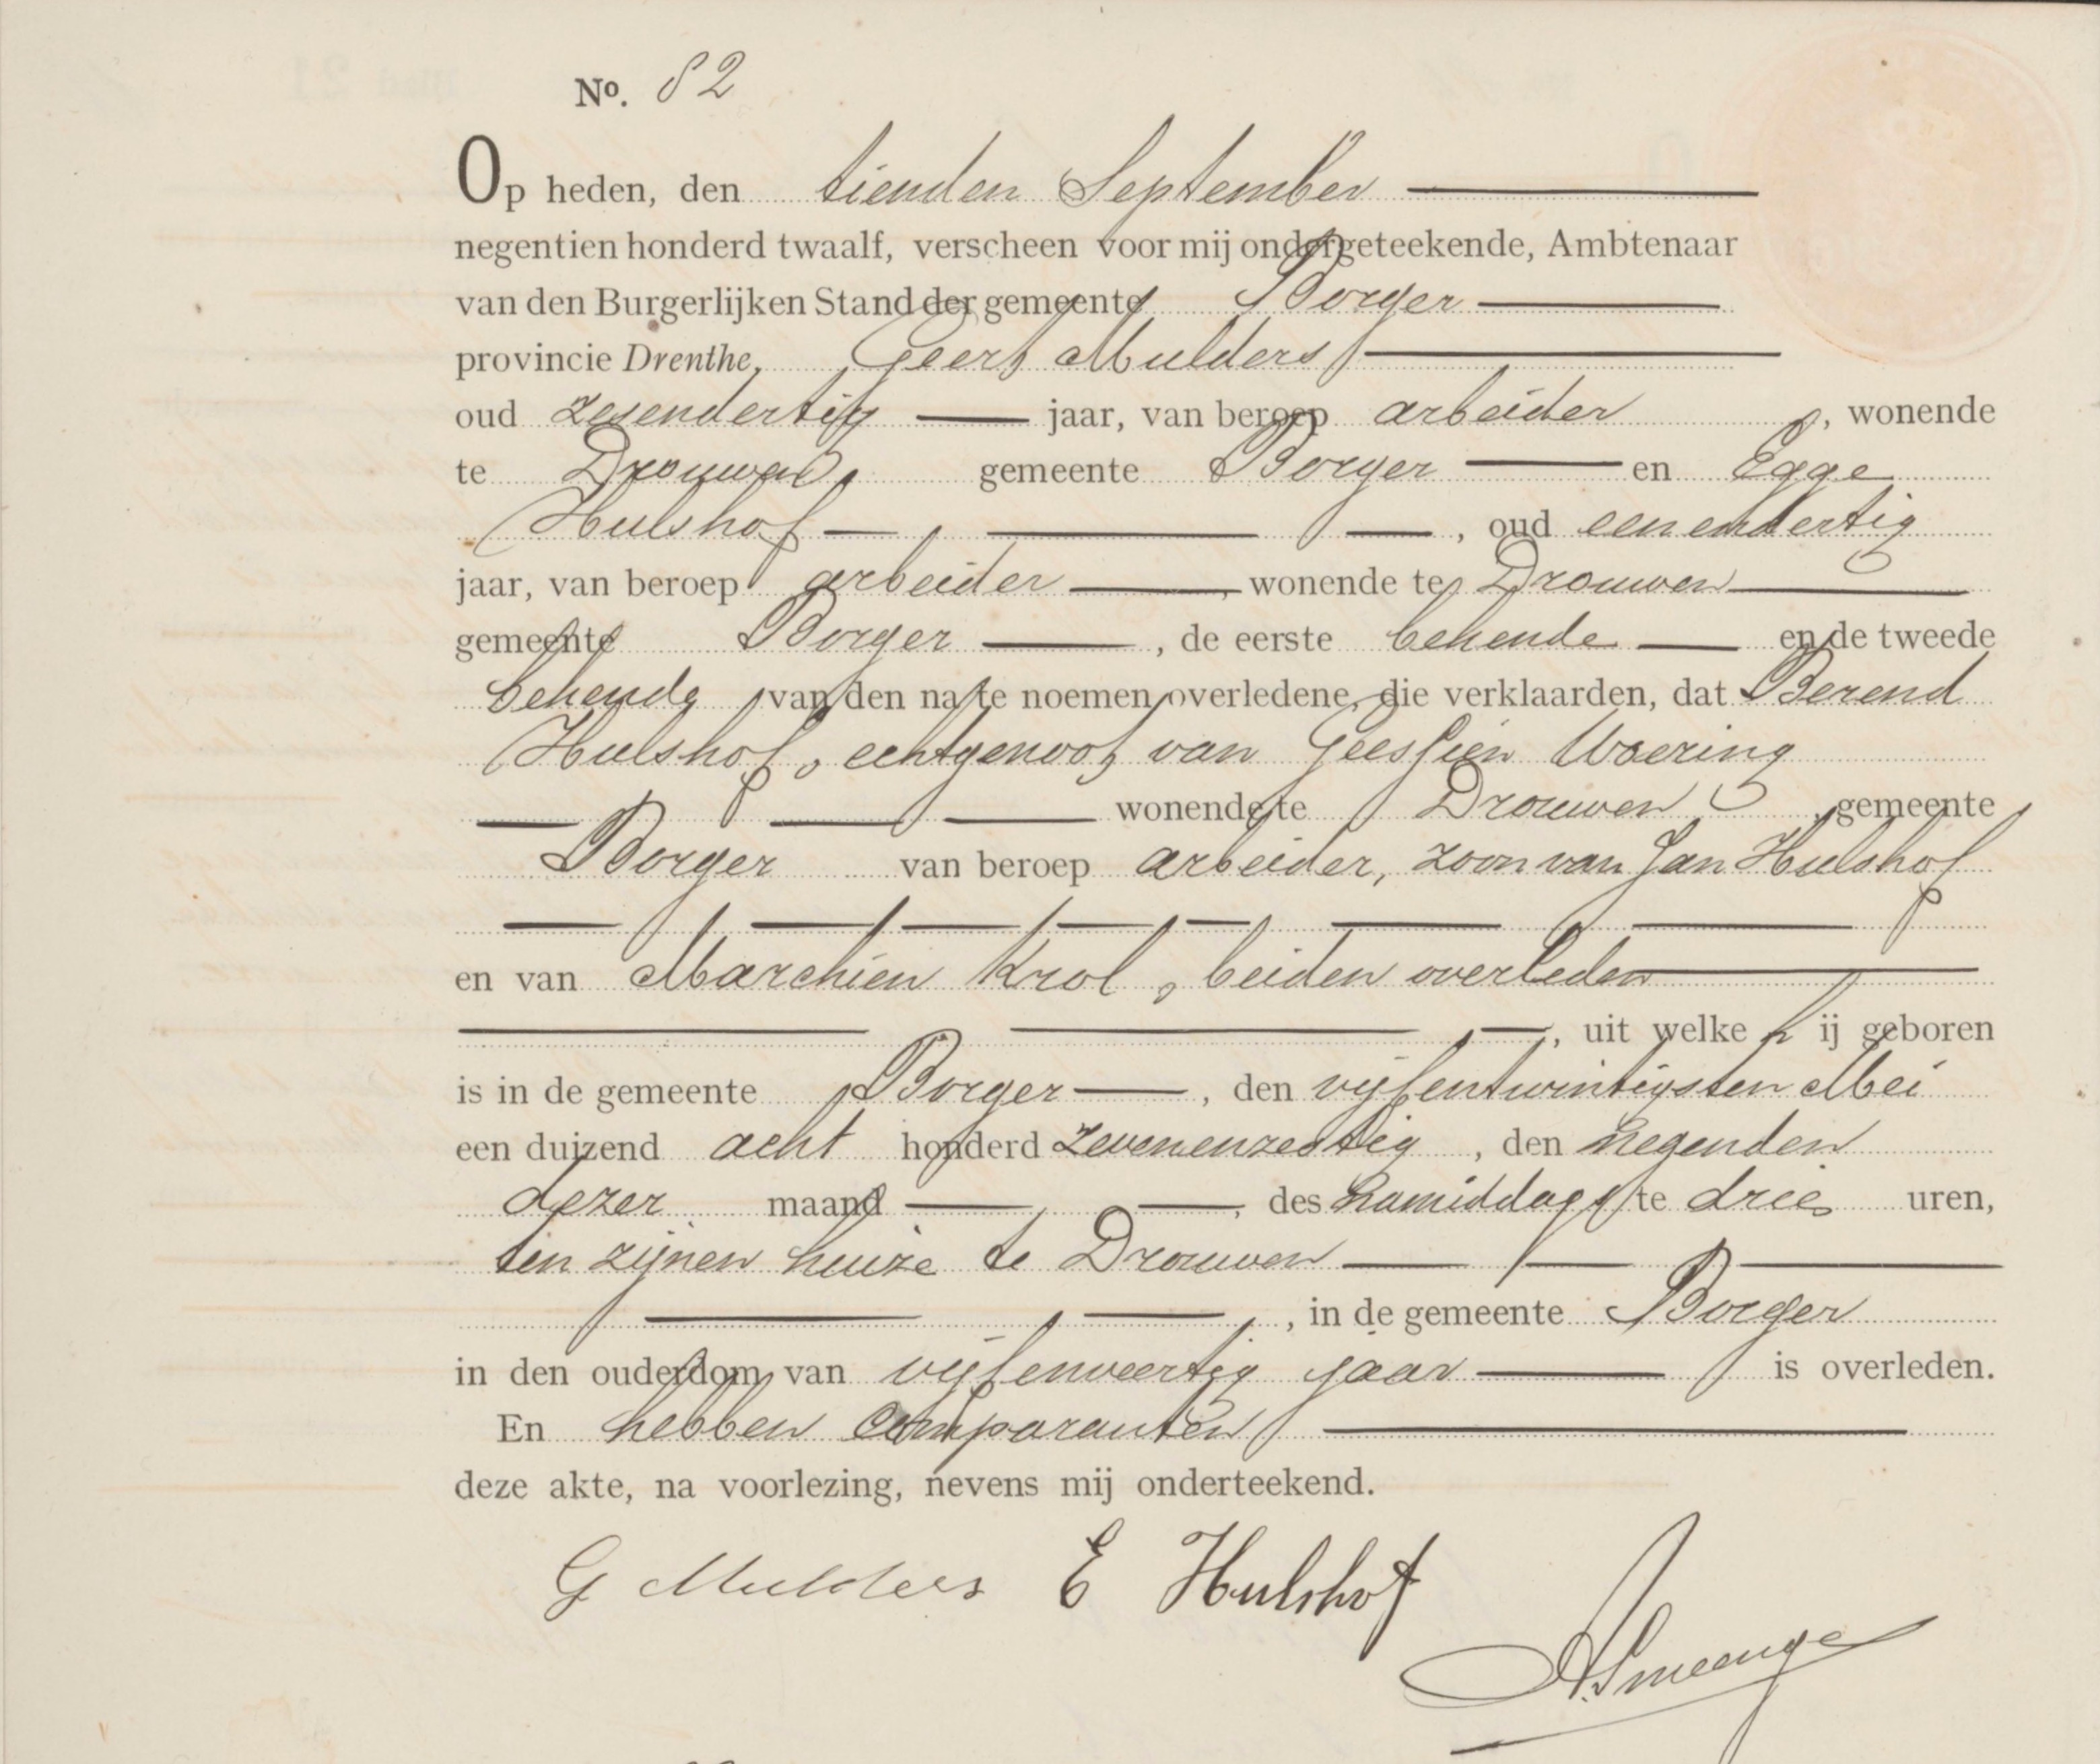 No. 82
Op heden, den tienden September
negentien honderd twaalf, verscheen voor mij ondergeteekende, Ambtenaar
van den Burgerlijken Stand der gemeente Borger
provincie Drenthe, Geert Mulders
oud zesendertig jaar, van beroep arbeider, wonende
te Drouwen, gemeente Borger en Egge
Hulshof, oud eenendertig
jaar, van beroep arbeider, wonende te Drouwen
gemeente Borger, de eerste bekende en de tweede
bekende van den na te noemen overledene, die verklaarden, dat Berend
Hulshof, echtgenoot van Geessien Woering
wonende te Drouwen, gemeente
Borger van beroep arbeider, zoon van Jan Hulshof
en van Marchien Krol, beiden overleden
, uit welke hij geboren
is in de gemeente Borger, den vijfentwintigsten Mei
een duizend acht honderd zevenenzestig, den negenden
dezer maand, des namiddags te drie uren,
ten zijnen huize te Drouwen
, in de gemeente Borger
in den ouderdom van vijfenveertig jaar is overleden.
En hebben comparanten
deze akte, na voorlezing, nevens mij onderteekend.
G Mulders E Hulshof